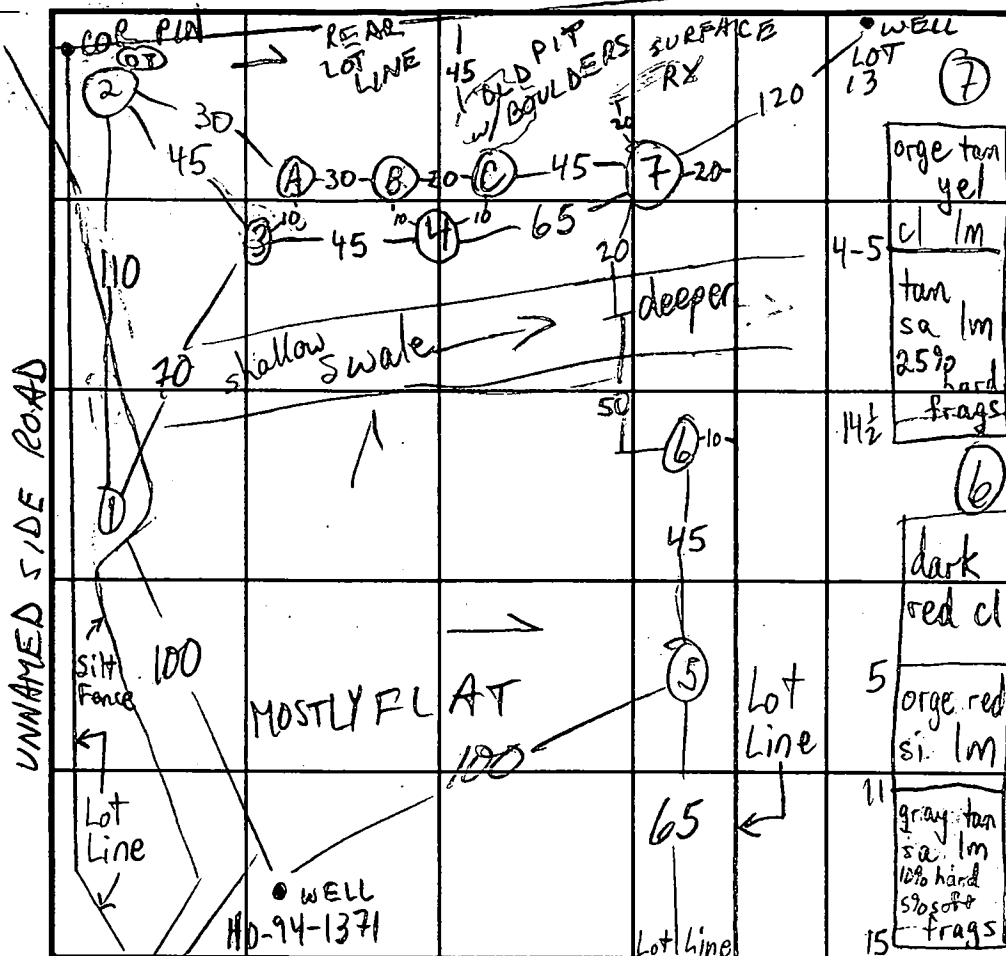 COR PIN
REAR
LOT
LINE
45
OLD PIT
W/ BOULDERS
SURFACE
RX
WELL
LOT
13
7
2
30
45
120
20
A
30
B
20
C
45
7
20
10
10
10
3
45
4
65
20
110
70
shallow swale
deeper
50
6
10
1
45
UNNAMED SIDE ROAD
Silt
Fence
100
MOSTLY FLAT
5
100
Lot
Line
Lot
Line
65
WELL
HO-94-1371
Lot Line
orge tan
yel
cl lm
4-5
tan
sa lm
25%
hard
frags
14 1/2
6
dark
red cl
5
orge red
si lm
11
gray tan
sa lm
10% hard
5% soft
frags
15